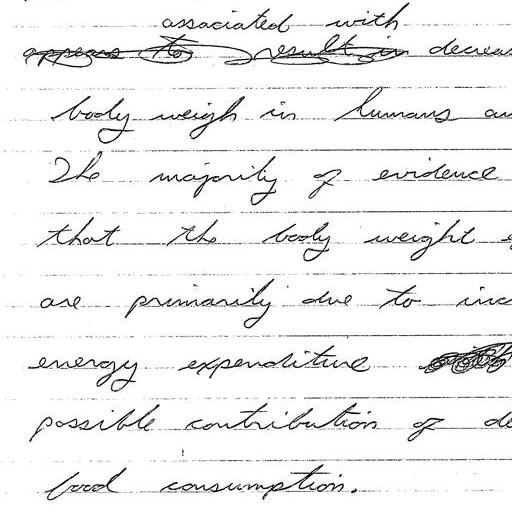 associated with
appears to result in decreas
body weigh in humans an
The majority of evidence
that the body weight e
are primarily due to inc
energy expenditure
possible contribution of de
food consumption.